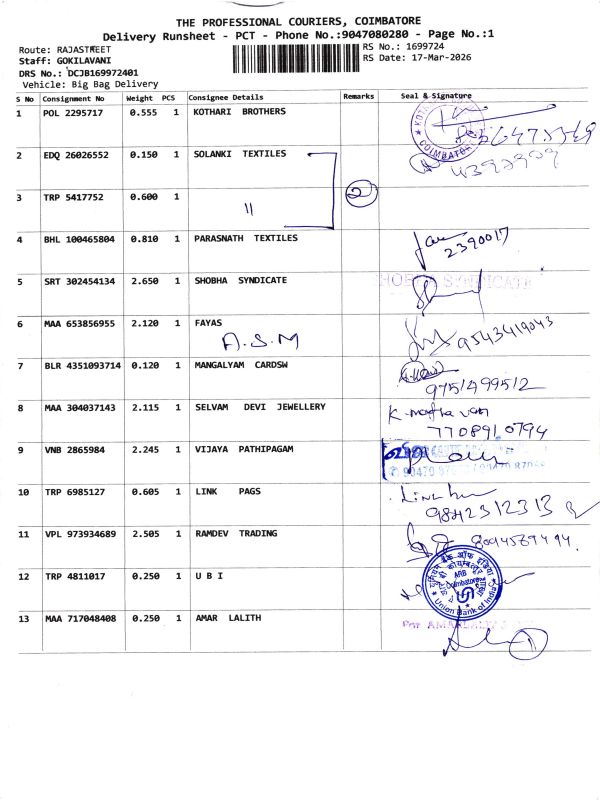 THE PROFESSIONAL COURIERS, COIMBATORE
Delivery Runsheet - PCT - Phone No.:9047080280 - Page No.:1
Route: RAJASTREET
RS No.: 1699724
Staff: GOKILAVANI
RS Date: 17-Mar-2026
DRS No.: DCJB169972401
Vehicle: Big Bag Delivery
S No Consignment No Weight PCS Consignee Details Remarks Seal & Signature
1 POL 2295717 0.555 1 KOTHARI BROTHERS
COIMBATORE
2 EDQ 26026552 0.150 1 SOLANKI TEXTILES
3 TRP 5417752 0.600 1 〃 2
4 BHL 100465804 0.810 1 PARASNATH TEXTILES
2390017
5 SRT 302454134 2.650 1 SHOBHA SYNDICATE
SHOBHA SYNDICATE
6 MAA 653856955 2.120 1 FAYAS
A.S.M
9543419043
7 BLR 4351093714 0.120 1 MANGALYAM CARDSW
9751499512
8 MAA 304037143 2.115 1 SELVAM DEVI JEWELLERY
7708910794
9 VNB 2865984 2.245 1 VIJAYA PATHIPAGAM
10 TRP 6985127 0.605 1 LINK PAGS
9842312313
11 VPL 973934689 2.505 1 RAMDEV TRADING
12 TRP 4811017 0.250 1 U B I
ARB
Coimbatore
Union Bank of India
13 MAA 717048408 0.250 1 AMAR LALITH